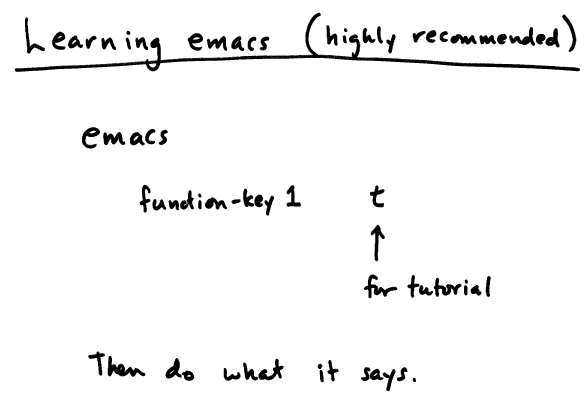 Learning emacs (highly recommended)
emacs
function-key 1 t
↑
for tutorial
Then do what it says.